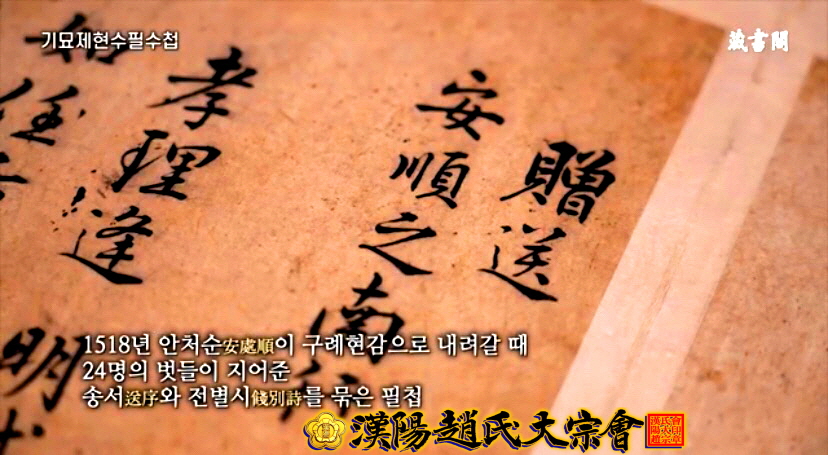 기묘제현수필수첩
藏書閣
贈送
安順之南行
孝理逢明
1518년 안처순安處順이 구례현감으로 내려갈 때
24명의 벗들이 지어준
송서送序와 전별시餞別詩를 묶은 필첩
漢陽趙氏大宗會